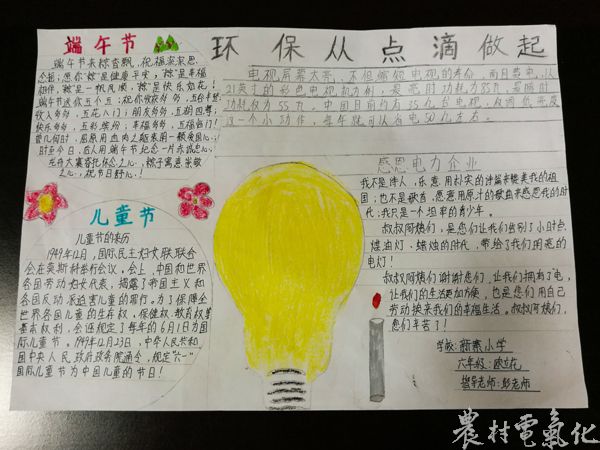 端午节
端午节来粽香飘，祝福家家思
念摇；愿你"粽"是健康平安，"粽"是幸福
相伴，"粽"是一帆风顺，"粽"是快乐如花！
端午节送你五个五：祝你收获多多，五谷丰登；
收入多多，五花八门；朋友多多，五湖四海；
快乐多多，五彩缤纷；幸福多多，五福临门！
曾几何时，屈原用血肉之躯来明一颗爱国心；
时至今日，后人用端午节纪念一片赤诚忠心；
龙舟大赛寄托怀念之心，粽子寓意崇敬
之心，祝节日舒心！
环保从点滴做起
电视屏幕太亮，不但缩短电视的寿命，而且费电。以
21英寸的彩色电视机为例，最亮时功耗为85瓦，最暗时
功耗仅为55瓦。中国目前约有35亿台电视，仅调低亮度
这一个小动作，每年就可以省电50亿度左右。
儿童节
儿童节的来历
1949年11月，国际民主妇女联联合
会在莫斯科举行会议。会上，中国和世界
各国劳动妇女代表，揭露了帝国主义和
各国反动派迫害儿童的罪行。为了保障全
世界各国儿童的生存权、保健权、教育权等
基本权利，会还规定了每年的6月1日为国
际儿童节。1949年12月23日，中华人民共和
国中央人民政府政务院通令，规定"六一"
国际儿童节为中国儿童的节日！
感恩电力企业
我不是诗人，乐意用朴实的诗篇来赞美我的祖
国；也不是歌者，愿意用原汁的歌曲来感恩我的时
代；我只是一个坦率的青少年。
叔叔阿姨们，是您们让我们告别了小时点
煤油灯、蜡烛的时代，带给了我们明亮的
电灯！
叔叔阿姨们谢谢您们，让我们拥有了电，
让我们的生活更加方便，也是您们用自己
劳动换来我们的幸福生活。叔叔阿姨们，
您们辛苦了！
学校：新寨小学
六年级：欧立花
指导老师：彭老师
農村電氣化